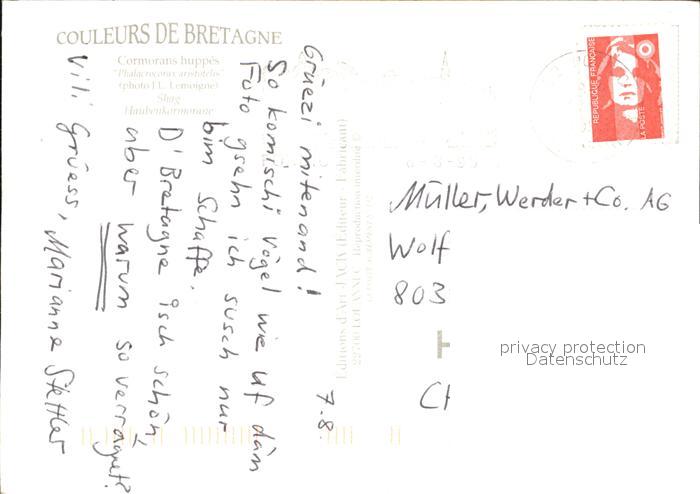 COULEURS DE BRETAGNE
Cormorans huppés
"Phalacrocorax aristotelis"
(photo J.L. Lemoigne)
Shag
Haubenkormorane
RÉPUBLIQUE FRANÇAISE
LA POSTE
7.8.
Gruezi mitenand!
So komischi Vögel wie uf däm
Foto gsehn ich susch nur
bim Schaffe.
D'Bretagne isch schön,
aber warum so verrägnet?
Vili Grüess, Marianne Stettler
Editions d'Art JACK (Editeur - Fabricant)
Reproduction interdite
Müller, Werder + Co. AG
Wolf
803
CH
privacy protection
Datenschutz